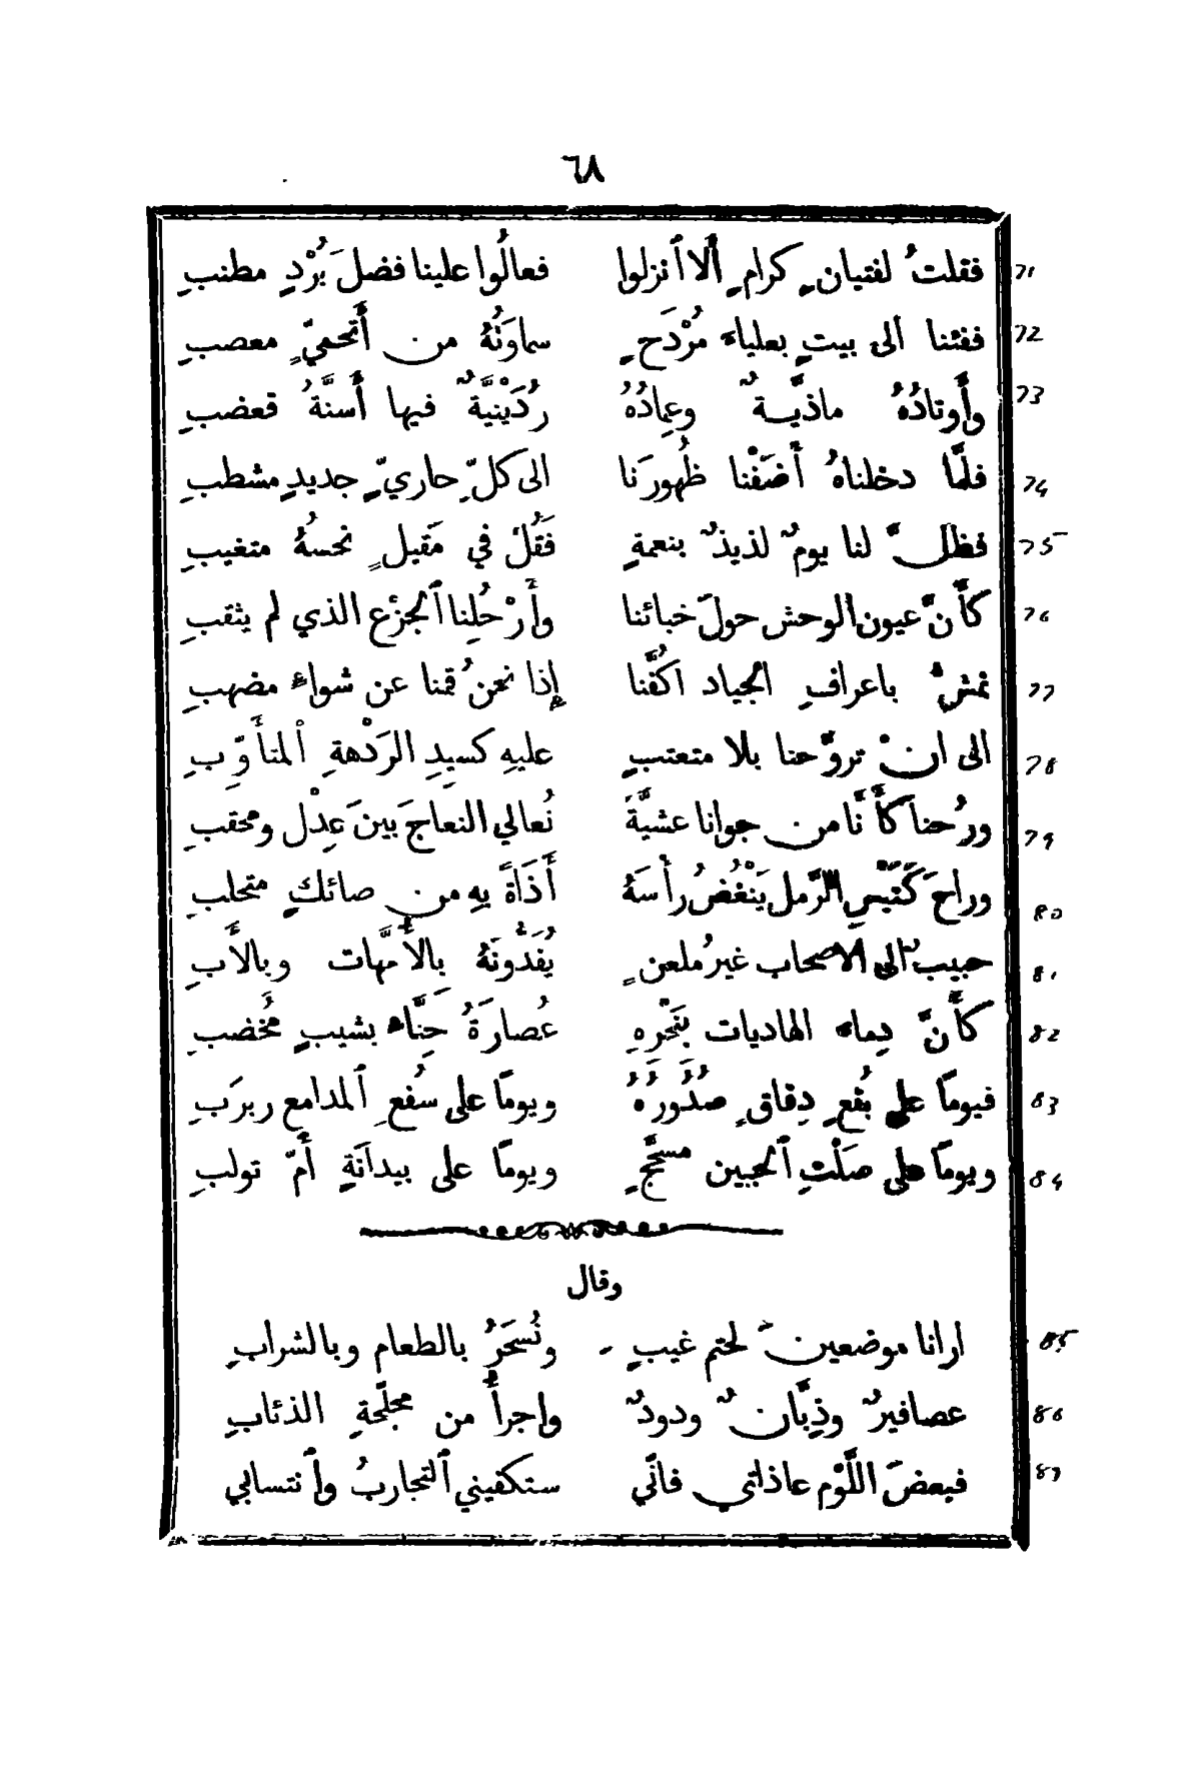 ٦٨
فقلتُ لفتيانٍ كرامٍ أَلا ٱنزلوا فعالُوا علينا فضلَ بُرْدٍ مطنبِ 71
ففئنا الى بيتٍ بعلياءَ مُرْدَحٍ سماوَتُهُ من أَتحميٍّ معصبِ 72
وأَوتادُهُ ماذيَّةٌ وعِمادُهُ رُدَيْنيَّةٌ فيها أَسنَّةُ قعضبِ 73
فلمَّا دخلناهُ أَضَفْنا ظُهورَنا الى كلِّ حاريٍّ جديدٍ مشطبِ 74
فظلَّ لنا يومٌ لذيذٌ بنعمةٍ فَقُلْ في مَقيلٍ نحسهُ متغيبِ 75
كأَنَّ عيون الوحش حولَ خبائنا وأَرْحُلِنا ٱلجزْع الذي لم يثقبِ 76
نمشُّ باعرافِ الجياد اكُفَّنا إِذا نحنُ قمنا عن شواءٍ مضهبِ 77
الى انْ تروَّحنا بلا متعتبٍ عليهِ كسيدِ الرَدْهةِ ٱلمتأَوِّبِ 78
ورُحنا كأَنَّا من جوانا عشيَّةً نُعالي النعاجَ بينَ عِدْل ومحقبِ 79
وراحَ كَتَيْسِ الرَّمل يَنْغُضُ رأْسَهُ أَذَاةً بِهِ من صائكٍ متحلبِ 80
حبيبٌ الى الاصحاب غيرُ ملعنٍ يُفَدُّونَهُ بالأُمَّهات وبالأَبِ 81
كأَنَّ دِماءَ الهاديات بنَحْرِهِ عُصارَةُ حِنَّاءٍ بشيبٍ مُخضبِ 82
فيومًا على بُقعٍ دِقاقٍ صُدُورُهُ ويومًا على سُفعِ ٱلمدامع ربرَبِ 83
ويومًا على صَلْتِ ٱلجبين مسحَّجٍ ويومًا على بيدانَةٍ أُمّ تولبِ 84
وقال
ارانا موضعينَ لحتم غيبٍ ونُسْحَرُ بالطعام وبالشرابِ 85
عصافيرٌ وذِبَّانٌ ودودٌ واجرأُ من مجلّحةِ الذئابِ 86
فبعضَ اللَّوْم عاذلتي فانّي ستكفيني ٱلتجاربُ وٱنتسابي 87